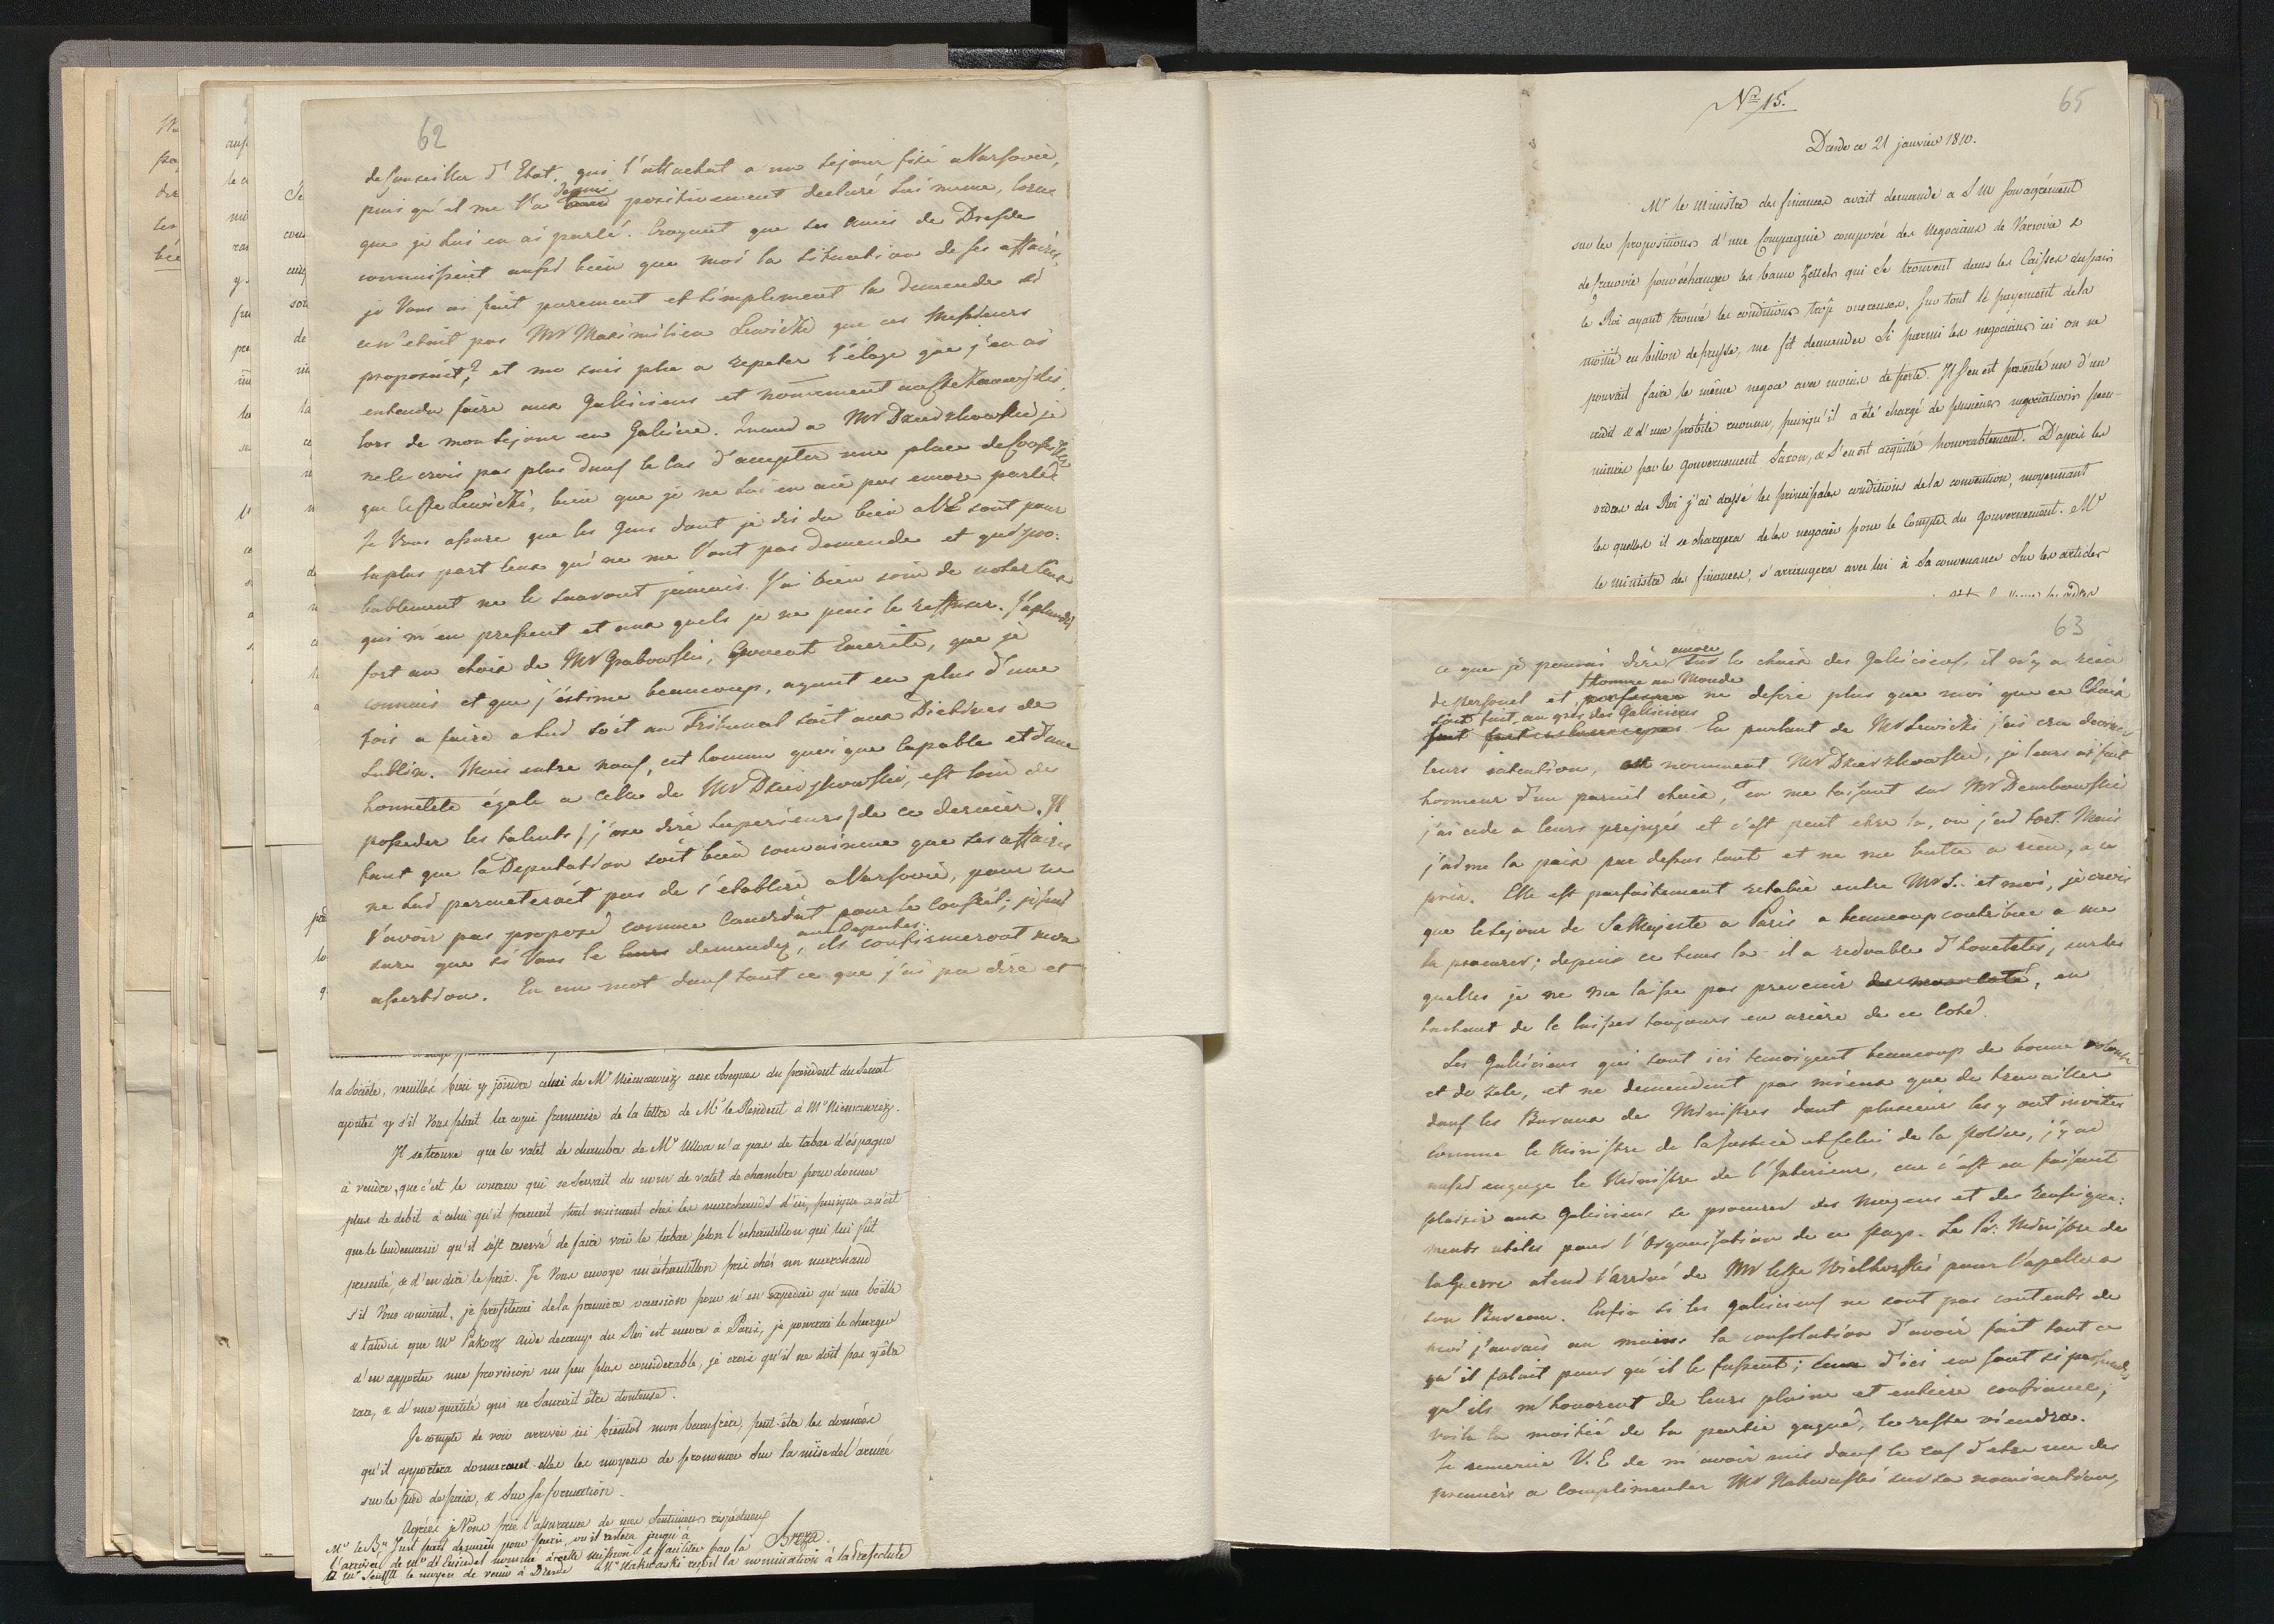 62
de Conseiller d'Etat, qui l'attachat a un sejour fixé a Varsovie,
puis qu'il me l'a depuis positivement declaré lui meme, lors
que je lui en ai parlé. Croyant que ses amis de Dresde
connaissent aussi bien que moi la situation de ses affaires,
je Vous ai fait purement et simplement la demande si
ce n'etoit pas Mr Maximilien Lewicki que ces Messieurs
proposoient? et me suis plu a repeter l'éloge que j'en ai
entendu faire aux Galiciens et nomement au Cte
lors de mon sejour en Galicie. Quand a Mr Dzierzkowski je
ne le crois pas plus dans le cas d'accepter une place de Conseiller
que le Cte Lewicki, bien que je ne lui en aie pas encore parlé
Je Vous assure que les gens dont je dis du bien a V.E. sont pour
la plus part ceux qui ne me l'ont pas demandé et qui pro:
bablement ne le sauront jamais. J'ai bien soin de noter ceux
qui m'en pressent et aux quels je ne puis le refuser. J'aplaudis
fort au choix de Mr Grabowski, que je
connais et que j'estime beaucoup, ayant eu plus d'une
fois a faire a lui soit au Tribunal soit aux Dietines de
Lublin. Mais entre nous, cet homme quoi que capable et d'une
honneteté égale a celle de Mr Dzierzkowski, est loin de
posseder les talents /j'ose dire superieurs/ de ce dernier. Il
faut que la Deputation soit bien convaincue que ses affaires
ne lui permeteroit pas de s'etablire a Varsovie, pour ne
l'avoir pas proposé comme Candidat pour le Conseil; je suis
sure que si Vous le demandez aux Deputés, ils confirmeront mon
assertion. En un mot dans tout ce que j'ai pu dire et
la Societé, veuillez bien y joindre celui de Mr Niemcewicz aux obseques du président du Senat
ajoutez y s'il Vous plait la copie francaise de la lettre de Mr le Résident à Mr Niemcewicz.
Il se trouve que le valet de chambre de Mr Ulloa n'a pas de tabac d'éspagne
à vendre, que c'est le coureur qui se servait du nom de valet de chambre pour donner
plus de debit à celui qu'il prenait tout uniment chés les marchands d'ici, puisque ce n'est
que le lendemain qu'il s'est reservé de faire voir le tabac selon l'echantillon qui lui fut
presenté, & d'en dire le prix. Je Vous envoye un échantillon pris chés un marchand
s'il Vous convient, je profiterai de la premiere occasion pour n'en expedier qu'une boëtte
& tandis que Mr Pakosz aide de camp du Roi est encore à Paris, je pourrai le charger
d'en apporter une provision un peu plus considerable, je crois qu'il ne doit pas y être
rare, & d'une qualité qui ne saurait être douteuse.
Je compte de voir arriver ici bientôt mon beaufrère, peut-être les données
qu'il apportera donneront elles les moyens de prononcer sur la mise de l'armée
sur le pied de paix, & sur sa formation.
Agréez je Vous prie l'assurance de mes sentimens respectueux
Breza
Mr le Bn Just part demain pour Paris, où il restera jusqu'à
l'arrivée de Mr d'Einsiedel nommé à cette mission & faciliter par là
à Mr Senfft le moyen de venir à Dresde Mr Nakwaski reçoit la nomination à la Prefecture
Nro 15.
65
Dresde ce 21 janvier 1810.
Mr le ministre des finances avait demandé a S M son agrément
sur les propositions d'une Compagnie composée des Negocians de Varsovie &
de Cracovie pour échanger les banco Zettels qui se trouvent dans les Caisses du païs
le Roi ayant trouvé les conditions trop onereuses, sur tout le payement de la
moitié en billon de prusse, me fit demander si parmi les negocians ici on ne
pouvait faire le même negoce avec moins de perte. Il s'en est presenté un d'un
credit & d'une probité reconnue, puisqu'il a été chargé de plusieurs negociations pecu-
niaires par le gouvernement Saxon, & s'en est acquitté honorablement. D'après les
ordres du Roi j'ai dressé les principales conditions de la convention, moyennant
les quelles il se chargera de les negocier pour le Compte du gouvernement. Mr
le ministre des finances, s'arrangera avec lui à sa convenance sur les articles
63
ce que je pouvois dire encore sur le choix des Galiciens, il n'y a rien
de personel et homme au Monde ne desire plus que moi que ce choix
soit fait au gré des Galiciens En parlant de Mr Lewicki j'ai cru deviner
leurs intention, en nommant Mr Dzierzkowski, je leurs ai fait
honneur d'un pareil choix, en me taisant sur Mr Dembowski
j'ai cedé a leurs prejugés et c'est peut etre la, ou j'ai tort. Mais
j'aime la paix par dessus tout et ne me butte a rien, a ce
prix. Elle est parfaitement retablie entre Mr S.. et moi, je crois
que le sejour de Sa Majesté a Paris a beaucoup contribué a me
la procurer; depuis ce tems la il a redoublé d'honetetés, sur les
quelles je ne me laisse pas prevenir de mon coté, en
tachant de le laisser toujours en ariere de ce coté.
Les Galiciens qui sont ici temoignent beaucoup de bonne volonté
et de zele, et ne demendent pas mieux que de travailler
dans les Bureaux des Ministres dont plusieurs les y ont invités
comme le Ministre de la Justice et Celui de la police, j'y ai
aussi engagé le Ministre de l'Interieur, car c'est en faisant
plaisir aux Galiciens se procurer des moyens et des renseigne:
ments utiles pour l'Organisation de ce pays. Le Pr. Ministre de
la guerre atend l'arrivé de Mr le Cte Wielhorski pour l'apeller a
son Bureau. Enfin si les galiciens ne sont pas contents de
moi j'aurais au moins la consolation d'avoir fait tout ce
qu'il falait pour qu'il le fussent; ceux d'ici en sont si persuadés
qu'ils m'honorent de leurs pleine et entiere confiance;
voila la moitié de la partie gagné, le reste viendra.
Je remercie V. E de m'avoir mis dans le cas d'etre un des
premiers a complimenter Mr Nakwaski sur sa nomination,